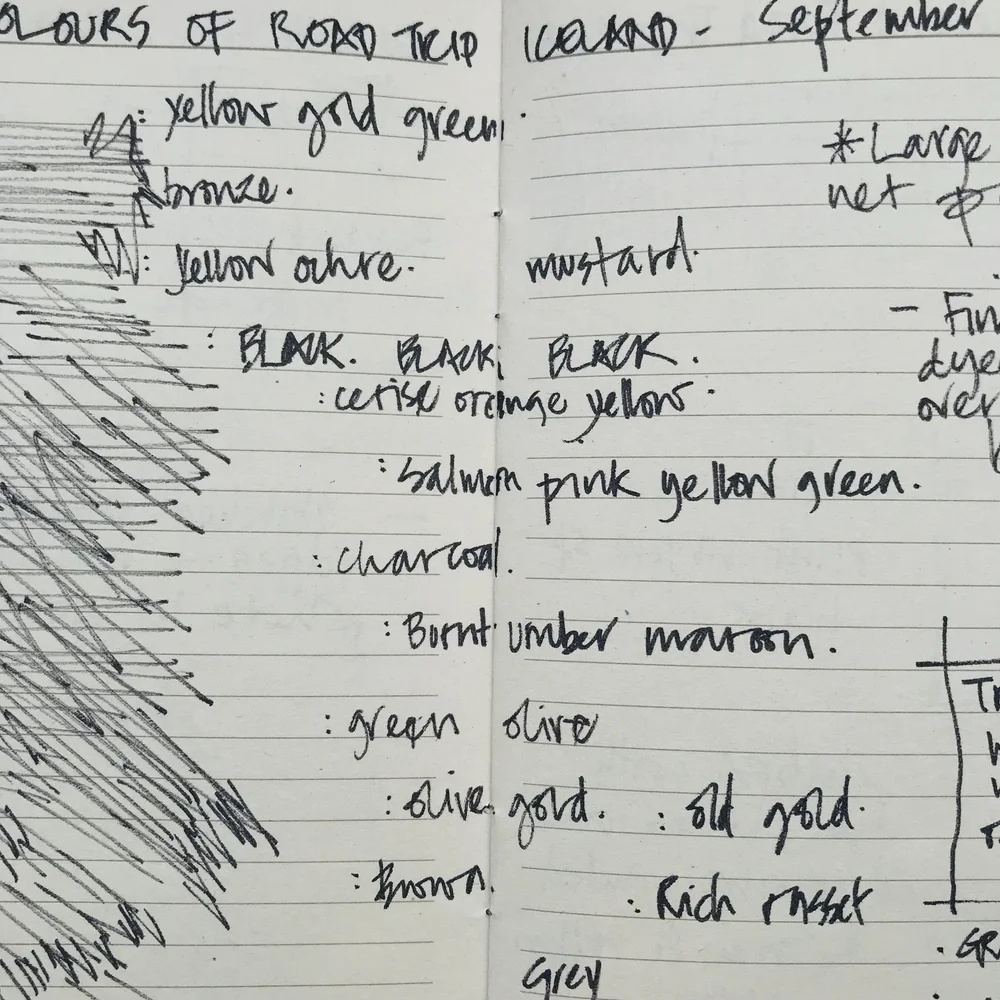 OLOURS OF ROAD TRIP ICELAND - September
: yellow gold green.
bronze.
: yellow ochre. mustard.
: BLACK. BLACK. BLACK.
: cerise orange yellow.
: salmon pink yellow green.
: charcoal.
: Burnt umber maroon.
: green olive
: olive gold. : old gold.
: Brown.
: Rich russet
Grey
* Large
net
- Fin
dye
over